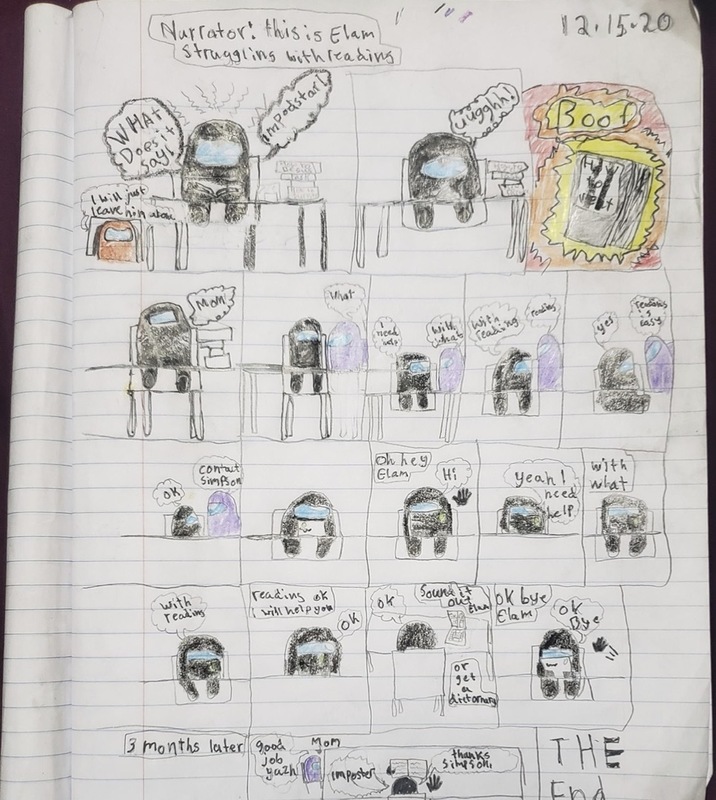 12.15.20
Narrator: this is Elam
struggling with reading
WHAT
Does it
say!
impodstar!
I will just
leave him alone
uugghh!
Boof
Mom
What
I need
help
with
what
with
reading
reading
yes
reading
is
easy
OK
contact
simpson
Oh hey
Elam
Hi
Yeah I
need
help
with
what
with
reading
reading ok
I will help you
OK
OK
Sound it
out
Elam
or
get
a
dictionary
OK bye
Elam
OK
Bye
3 months later
good
job
Mom
imposter
thanks
simpson
THE
End